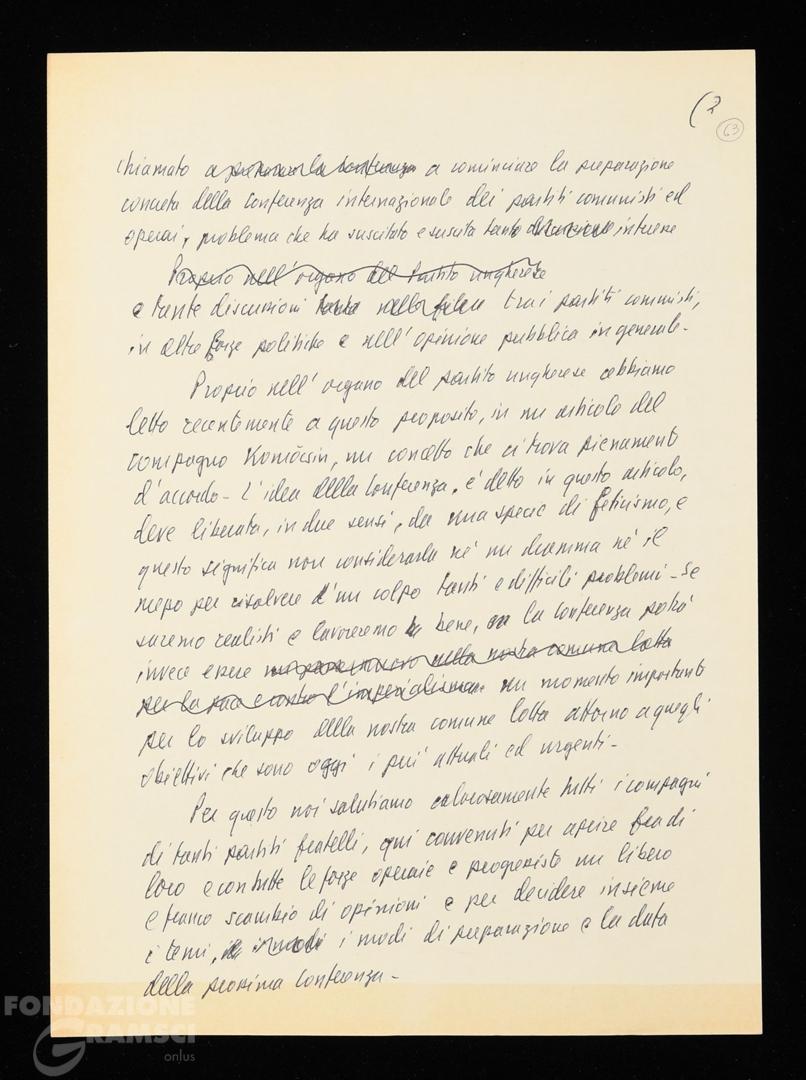 (2
63
chiamato a preparare la conferenza a cominciare la preparazione
concreta della conferenza internazionale dei partiti comunisti ed
operai, problema che ha suscitato e suscita tanto interesse
Proprio nell'organo del Partito ungherese
e tante discussioni tanto nelle file tra i partiti comunisti,
in altre forze politiche e nell'opinione pubblica in generale-
Proprio nell'organo del partito ungherese abbiamo
letto recentemente a questo proposito, in un articolo del
compagno Komócsin, un concetto che ci trova pienamente
d'accordo- L'idea della conferenza, è detto in questo articolo,
deve liberata, in due sensi, da una specie di feticismo, e
questo significa non considerarla né un dramma né il
mezzo per risolvere d'un colpo tanti e difficili problemi- Se
saremo realisti e lavoreremo bene, la conferenza potrà
invece essere un passo nuovo nella nostra comune lotta
per la pace e contro l'imperialismo un momento importante
per lo sviluppo della nostra comune lotta attorno a quegli
obiettivi che sono oggi i più attuali ed urgenti-
Per questo noi salutiamo calorosamente tutti i compagni
di tanti partiti fratelli, qui convenuti per aprire fra di
loro e con tutte le forze operaie e progressiste un libero
e franco scambio di opinioni e per decidere insieme
i temi, i modi i modi di preparazione e la data
della prossima conferenza-
FONDAZIONE
GRAMSCI
onlus